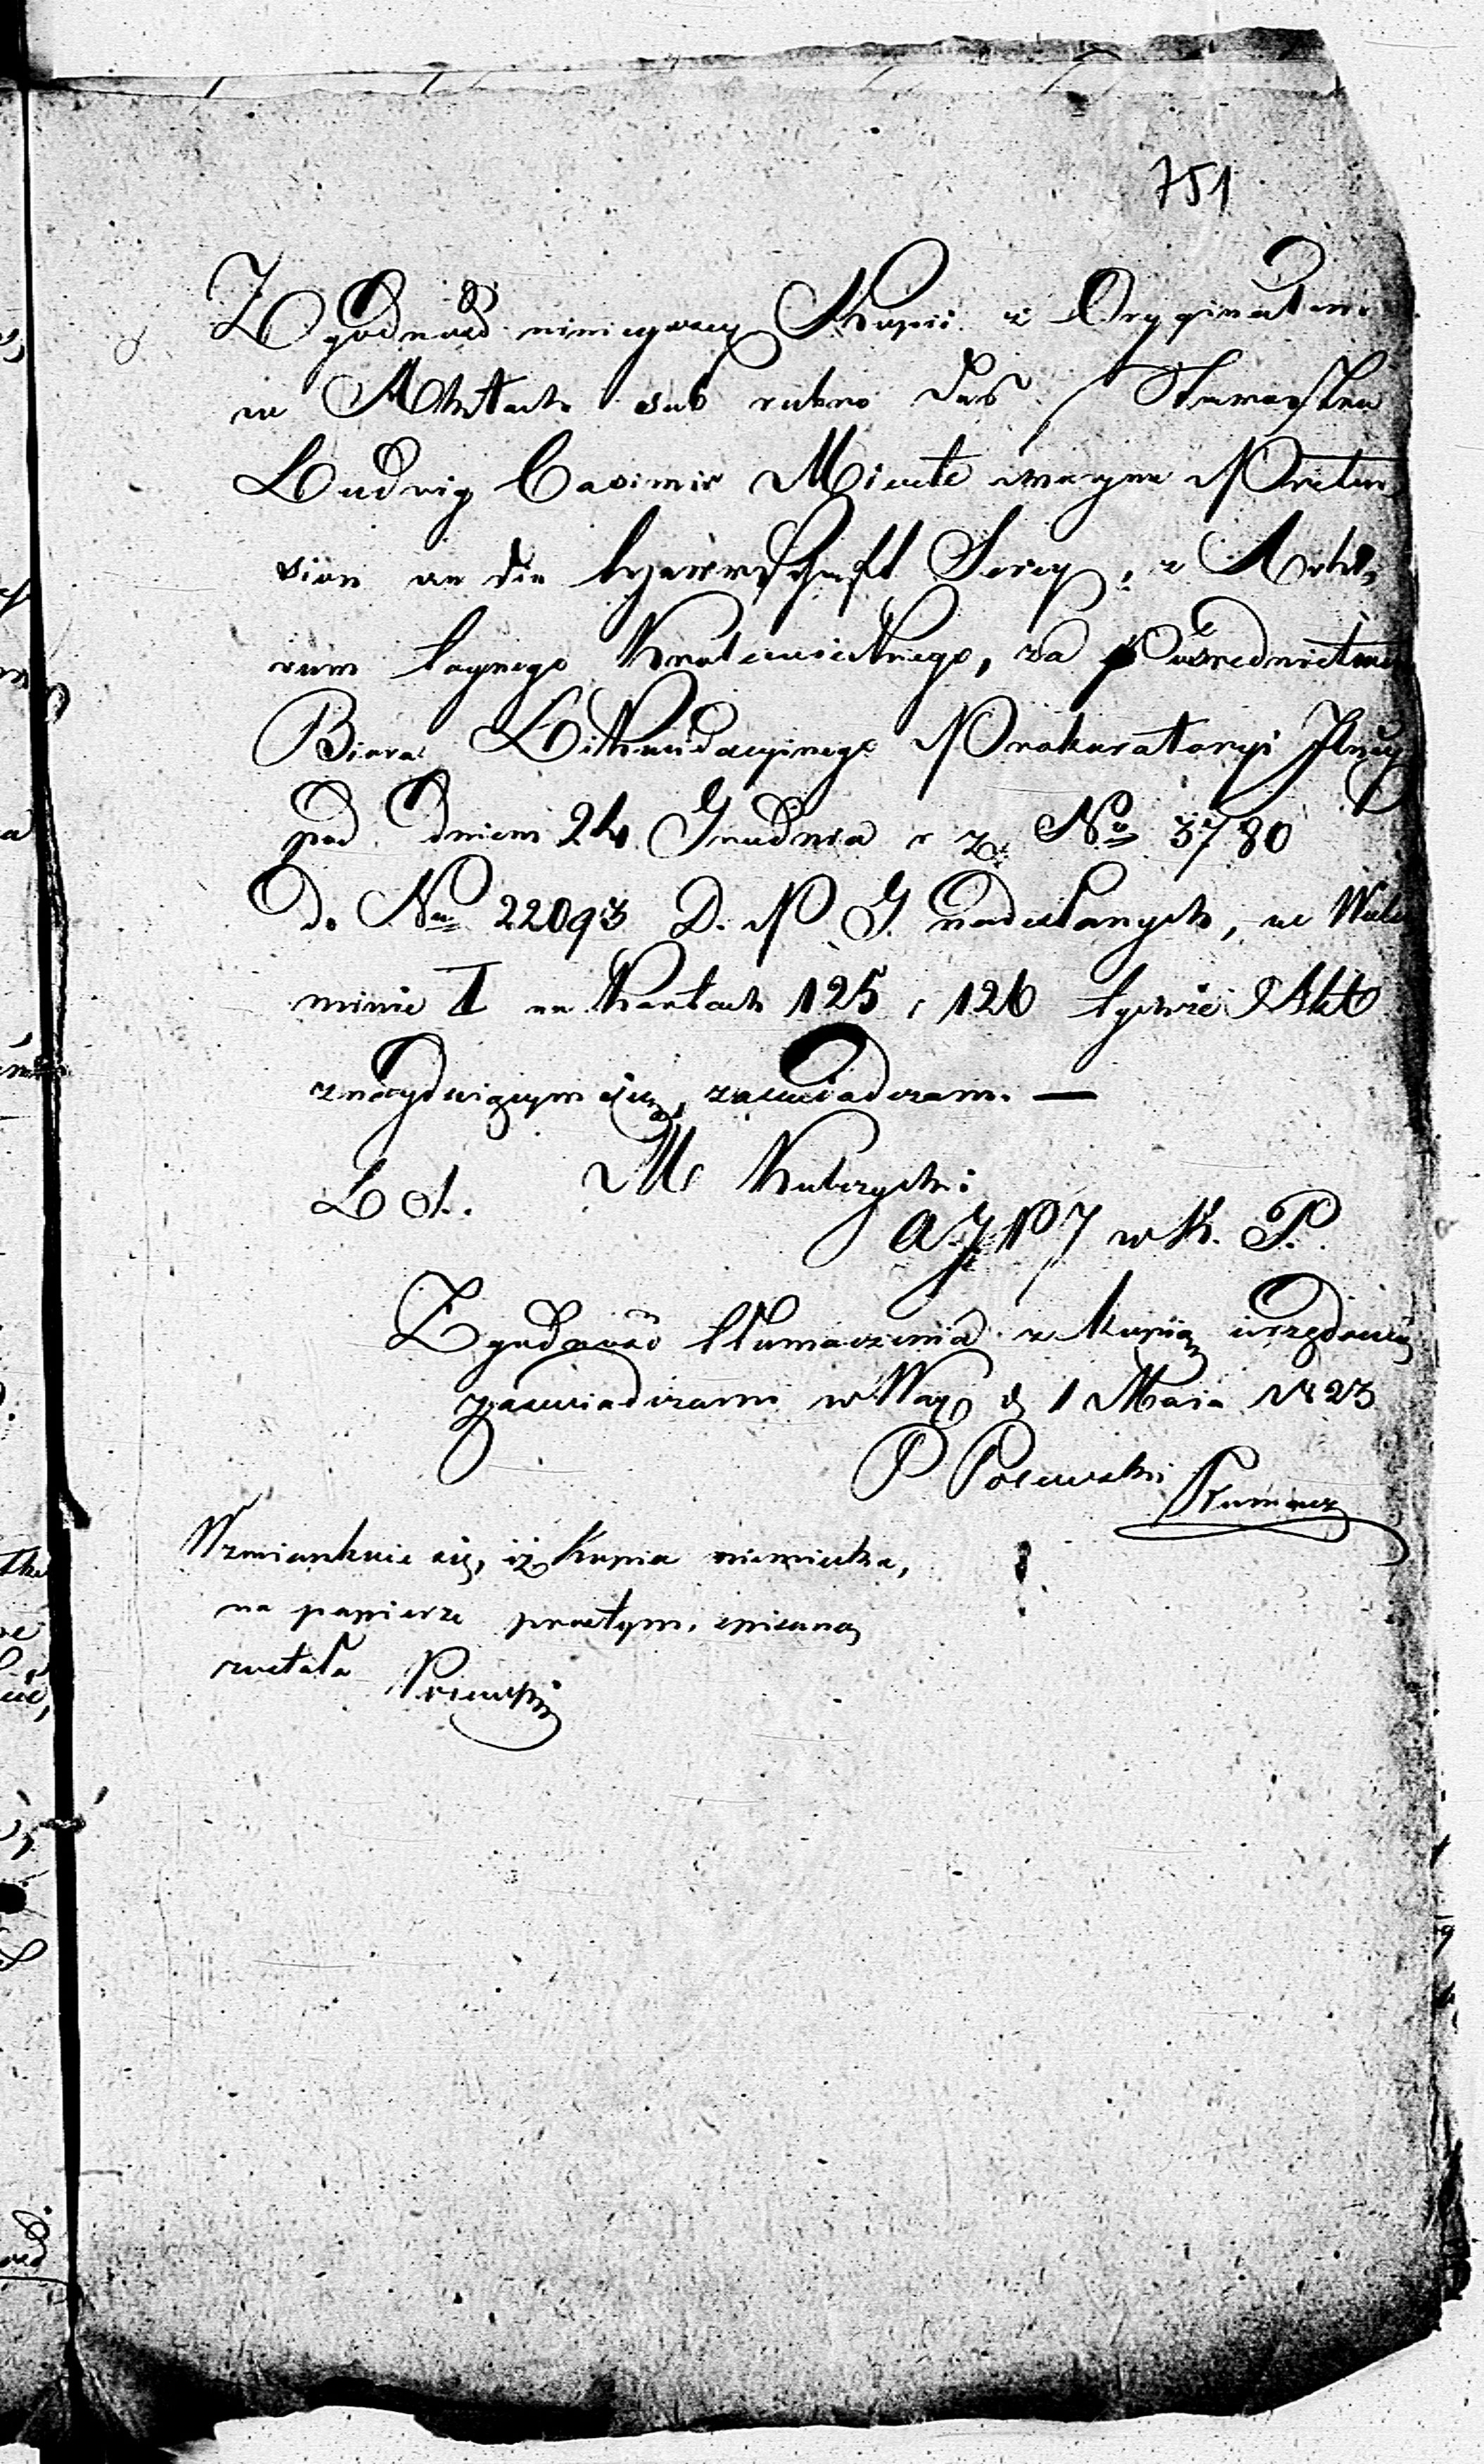 751
Zgodność ninieyszey Kopii z Oryginałem
w Aktach sub rubro Das Starosten
Ludwig Casimir wegen Preten
sion an die Herrschaft Serey, z Archi
wum taynego Królewieckiego, za pośrednictwem
Biura Likwidacyinego Prokuratoryi
pod dniem 24 Grudnia r z No 3780
do Nru 22093 D. P. G. nadesłanych, w Wolu
minie I na kartach 125 i 126 tychże Akt
znayduiącym się, zaświadczam. —
M Kulczycki
A J P J w K. P.
Zgodność tłumaczenia z kopią urzędową
zaświadczam w War d 1 Maia 1823
P Tłumacz
Wzmiankuie się, iż kopia niemiecka,
na papierze prostym, spisaną
została